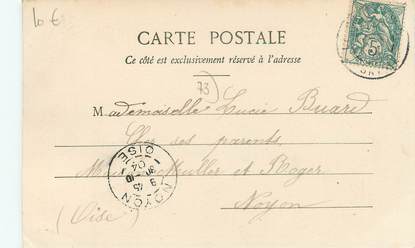 10 €
CARTE POSTALE
Ce côté est exclusivement réservé à l'adresse
73
Mademoiselle Lucie Buard
Chez ses parents
et Roger
Noyon
(Oise)
NOYON
OISE
5